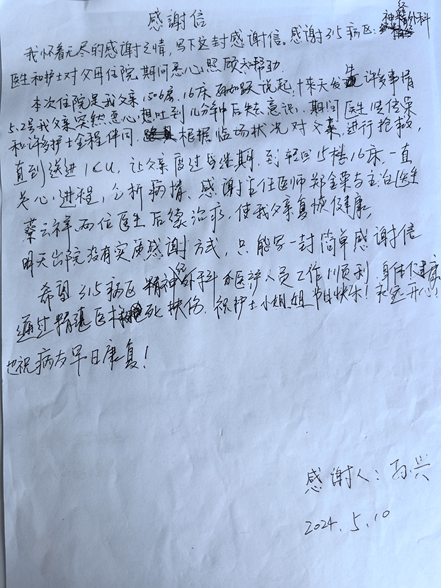 感谢信
我怀着无尽的感谢之情，写下这封感谢信。感谢315病区神经外科
医生和护士对父母住院期间悉心照顾和帮助
本次住院是我父亲1506房，16床 说起，十来天发生许多事情
5.2号我父亲突然恶心想吐到几分钟后失去意识，期间医生
和许多护士全程伴同，根据临场状况对父亲进行抢救，
直到送进ICU，让父亲度过危险期，到轻回15楼16床，一直
关心进程，分析病情，感谢主任医师郑金荣与主治医生
蔡 两位医生后续治疗，使我父亲复恢健康，
明天出院没有实质感谢方式，只能写一封简单感谢信
希望315病区精神外科和医护人员工作顺利，身体健康
通过精湛医术 死扶伤，祝护士小姐姐节日快乐！天天开心！
也祝病友早日康复！
感谢人：
2024.5.10